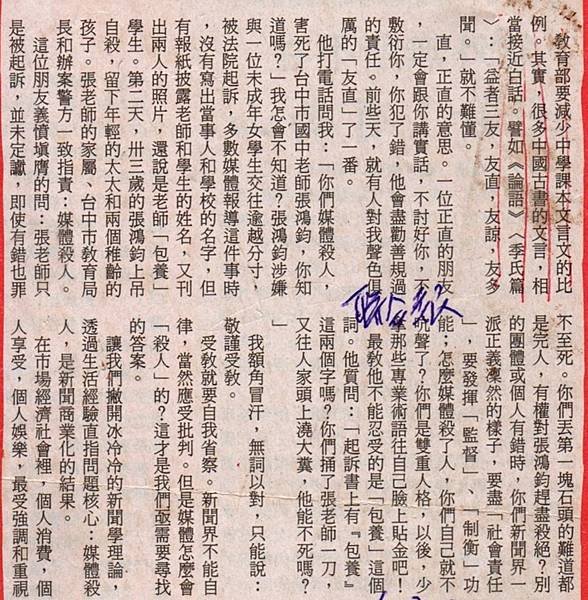 教育部要減少中學課本文言文的比
例。其實，很多中國古書的文言，相
當接近白話。譬如《論語》〈季氏篇
〉：「益者三友　友直，友諒，友多
聞。」就不難懂。
直，正直的意思。一位正直的朋友
，一定會跟你講實話，不討好你，不
敷衍你，你犯了錯，他會盡勸善規過
的責任。前些天，就有人對我聲色俱
厲的「友直」了一番。
他打電話問我：「你們媒體殺人，
害死了台中市國中老師張鴻鈞，你知
道嗎？」我怎會不知道？張鴻鈞涉嫌
與一位未成年女學生交往逾越分寸，
被法院起訴，多數媒體報導這件事時
，沒有寫出當事人和學校的名字，但
有報紙披露老師和學生的姓名，又刊
出兩人的照片，還說是老師「包養」
學生。第二天，卅三歲的張鴻鈞上吊
自殺，留下年輕的太太和兩個稚齡的
孩子。張老師的家屬、台中市教育局
長和辦案警方一致指責：媒體殺人。
這位朋友義憤填膺的問：張老師只
是被起訴，並未定讞，即使有錯也罪
不至死。你們丟第一塊石頭的難道都
是完人，有權對張鴻鈞趕盡殺絕？別
的團體或個人有錯時，你們新聞界一
派正義凜然的樣子，要盡「社會責任
」，要發揮「監督」、「制衡」功
能；怎麼媒體殺了人，你們自己就不
聲了？你們是雙重人格，以後，少
拿那些專業術語往自己臉上貼金吧！
最教他不能忍受的是「包養」這個
詞。他質問：「起訴書上有『包養』
這兩個字嗎？你們捅了張老師一刀，
又往人家頭上澆大糞，他能不死嗎？
」
我額角冒汗，無詞以對，只能說：
敬謹受教。
受教就要自我省察。新聞界不能自
律，當然應受批判。但是媒體怎麼會
「殺人」的？這才是我們亟需要尋找
的答案。
讓我們撇開冰冷冷的新聞學理論，
透過生活經驗直指問題核心：媒體殺
人，是新聞商業化的結果。
在市場經濟社會裡，個人消費，個
人享受，個人娛樂，最受強調和重視